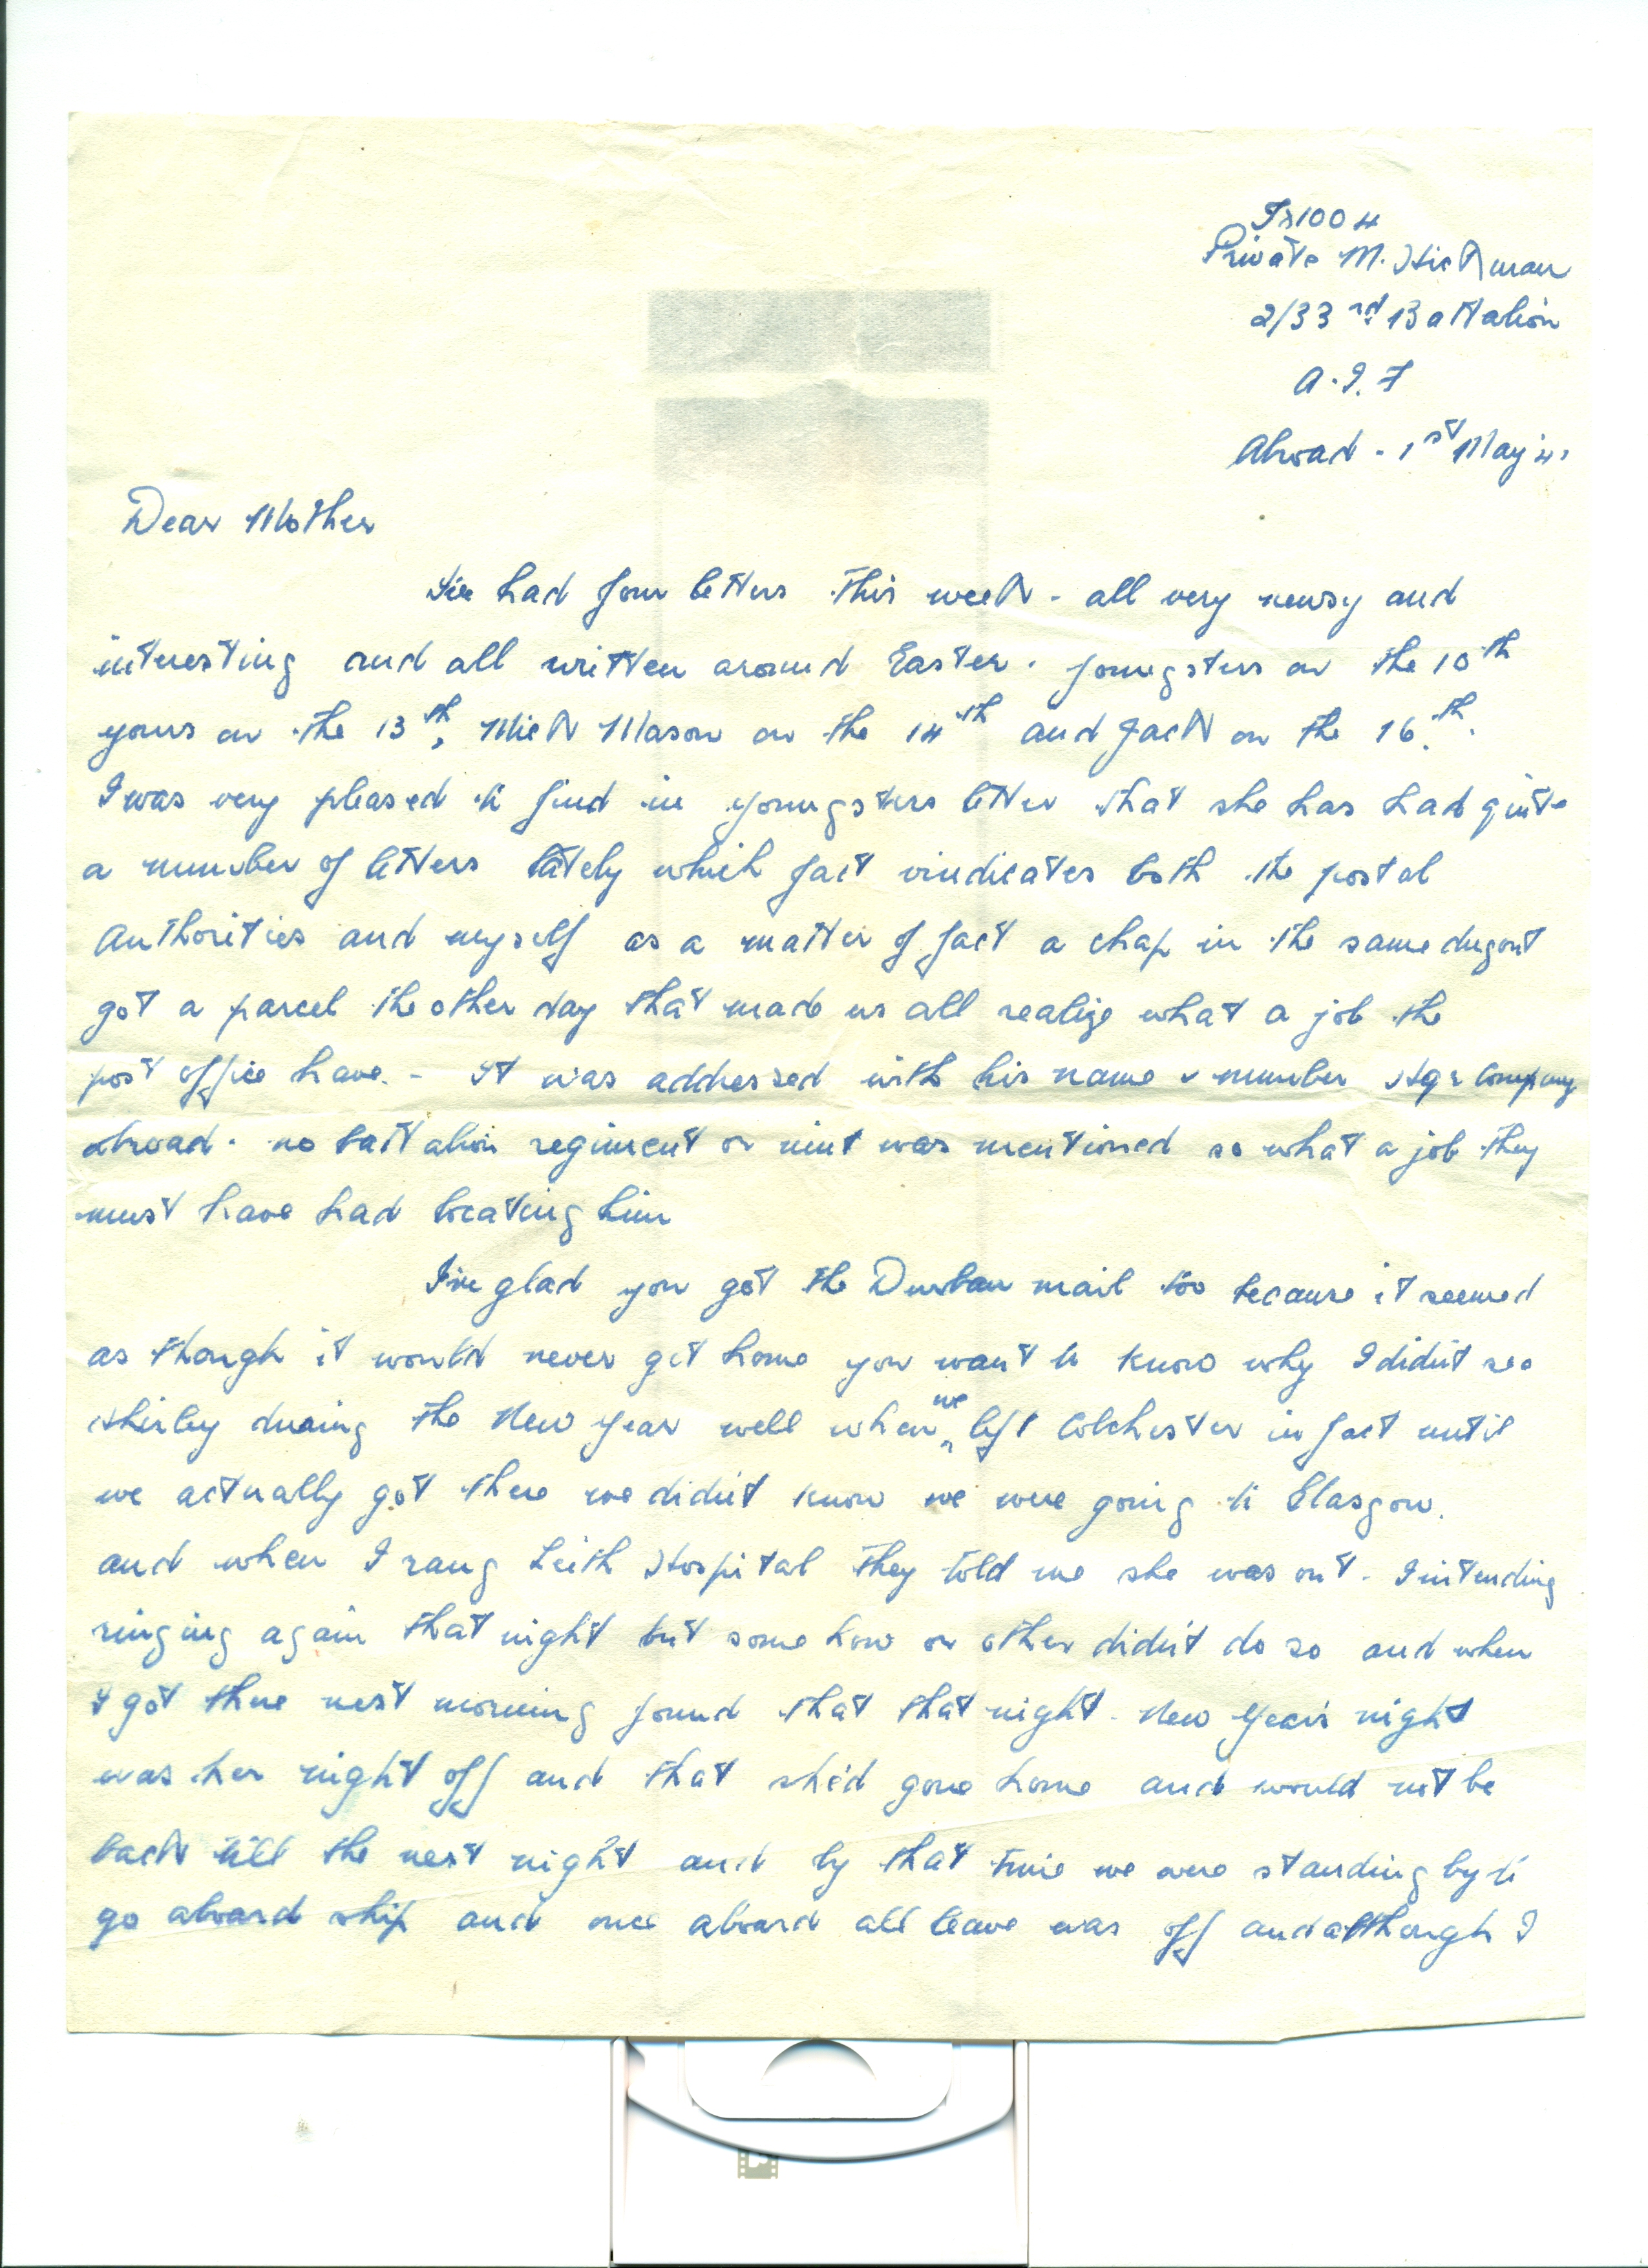 Private M. Hickman
2/33rd Battalion
A.I.F
Abroad - 1st May 41
Dear Mother
I've had four letters this week - all very newsy and
interesting and all written around Easter. Youngsters on the 10th
yours on the 13th, Mick Mason on the 14th and Jack on the 16th.
I was very pleased to find in youngsters letter that she has had quite
a number of letters lately which fact vindicates both the postal
authorities and myself as a matter of fact a chap in the same dugout
got a parcel the other day that made us all realize what a job the
post office have. - It was addressed with his name & number Hqr Company
abroad. no battalion regiment or unit was mentioned so what a job they
must have had locating him
I'm glad you got the Durban mail too because it seemed
as though it would never get home you want to know why I didn't see
Shirley during the New Year well when we left Colchester in fact until
we actually got there we didn't know we were going to Glasgow.
and when I rang Leith Hospital they told me she was out. I intending
ringing again that night but some how or other didn't do so and when
I got there next morning found that that night - New Year's night
was her night off and that she'd gone home and would not be
back till the next night and by that time we were standing by to
go aboard ship and once aboard all leave was off and although I